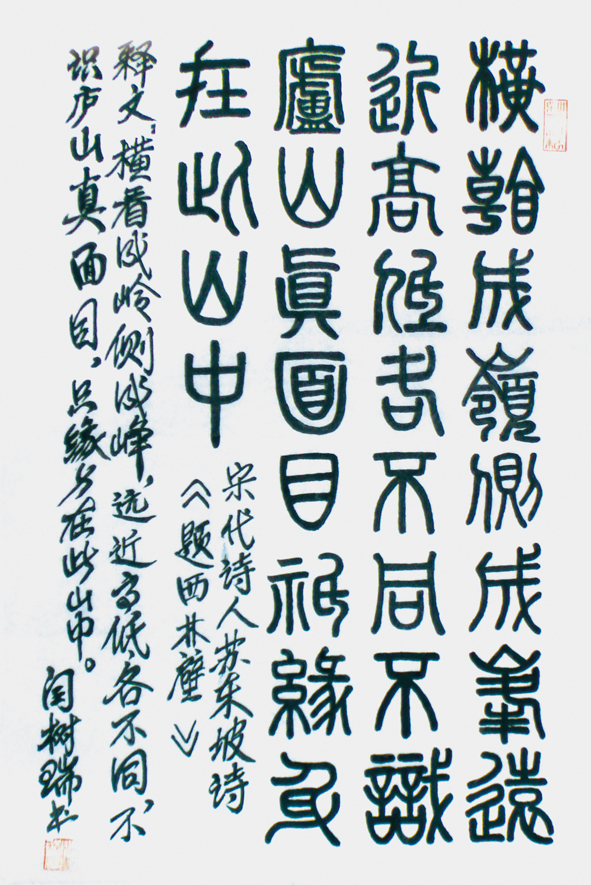 橫看成嶺側成峯遠
近高低各不同不識
廬山眞面目祇緣身
在此山中
宋代诗人苏东坡诗
《题西林壁》
释文：横看成岭侧成峰，远近高低各不同，不
识庐山真面目，只缘身在此山中。闫树瑞书